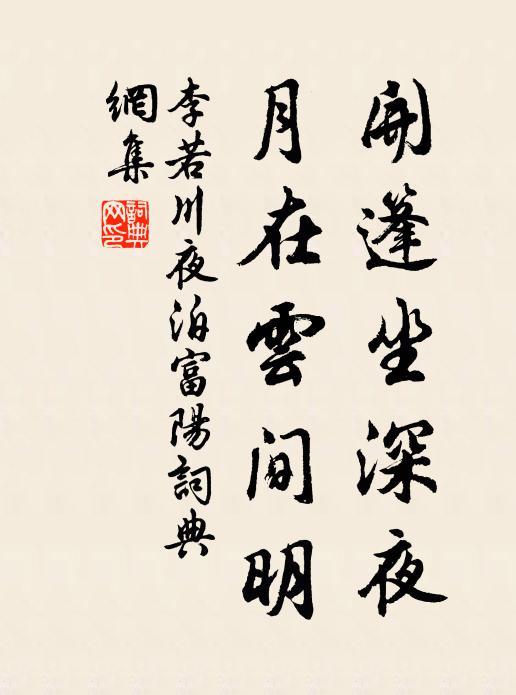 開篷坐深夜
月在雲間明
李若川夜泊富陽詞典
網集
詞典網印